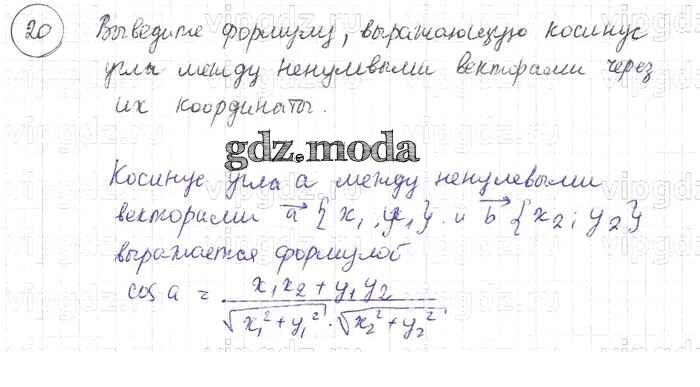 20 Выведите формулу, выражающую косинус
угла между ненулевыми векторами через
их координаты.
gdz.moda
Косинус угла a между ненулевыми
векторами a→ {x₁, y₁} и b→ {x₂; y₂}
выражается формулой
cos a = (x₁x₂ + y₁y₂) / (√(x₁² + y₁²) · √(x₂² + y₂²))